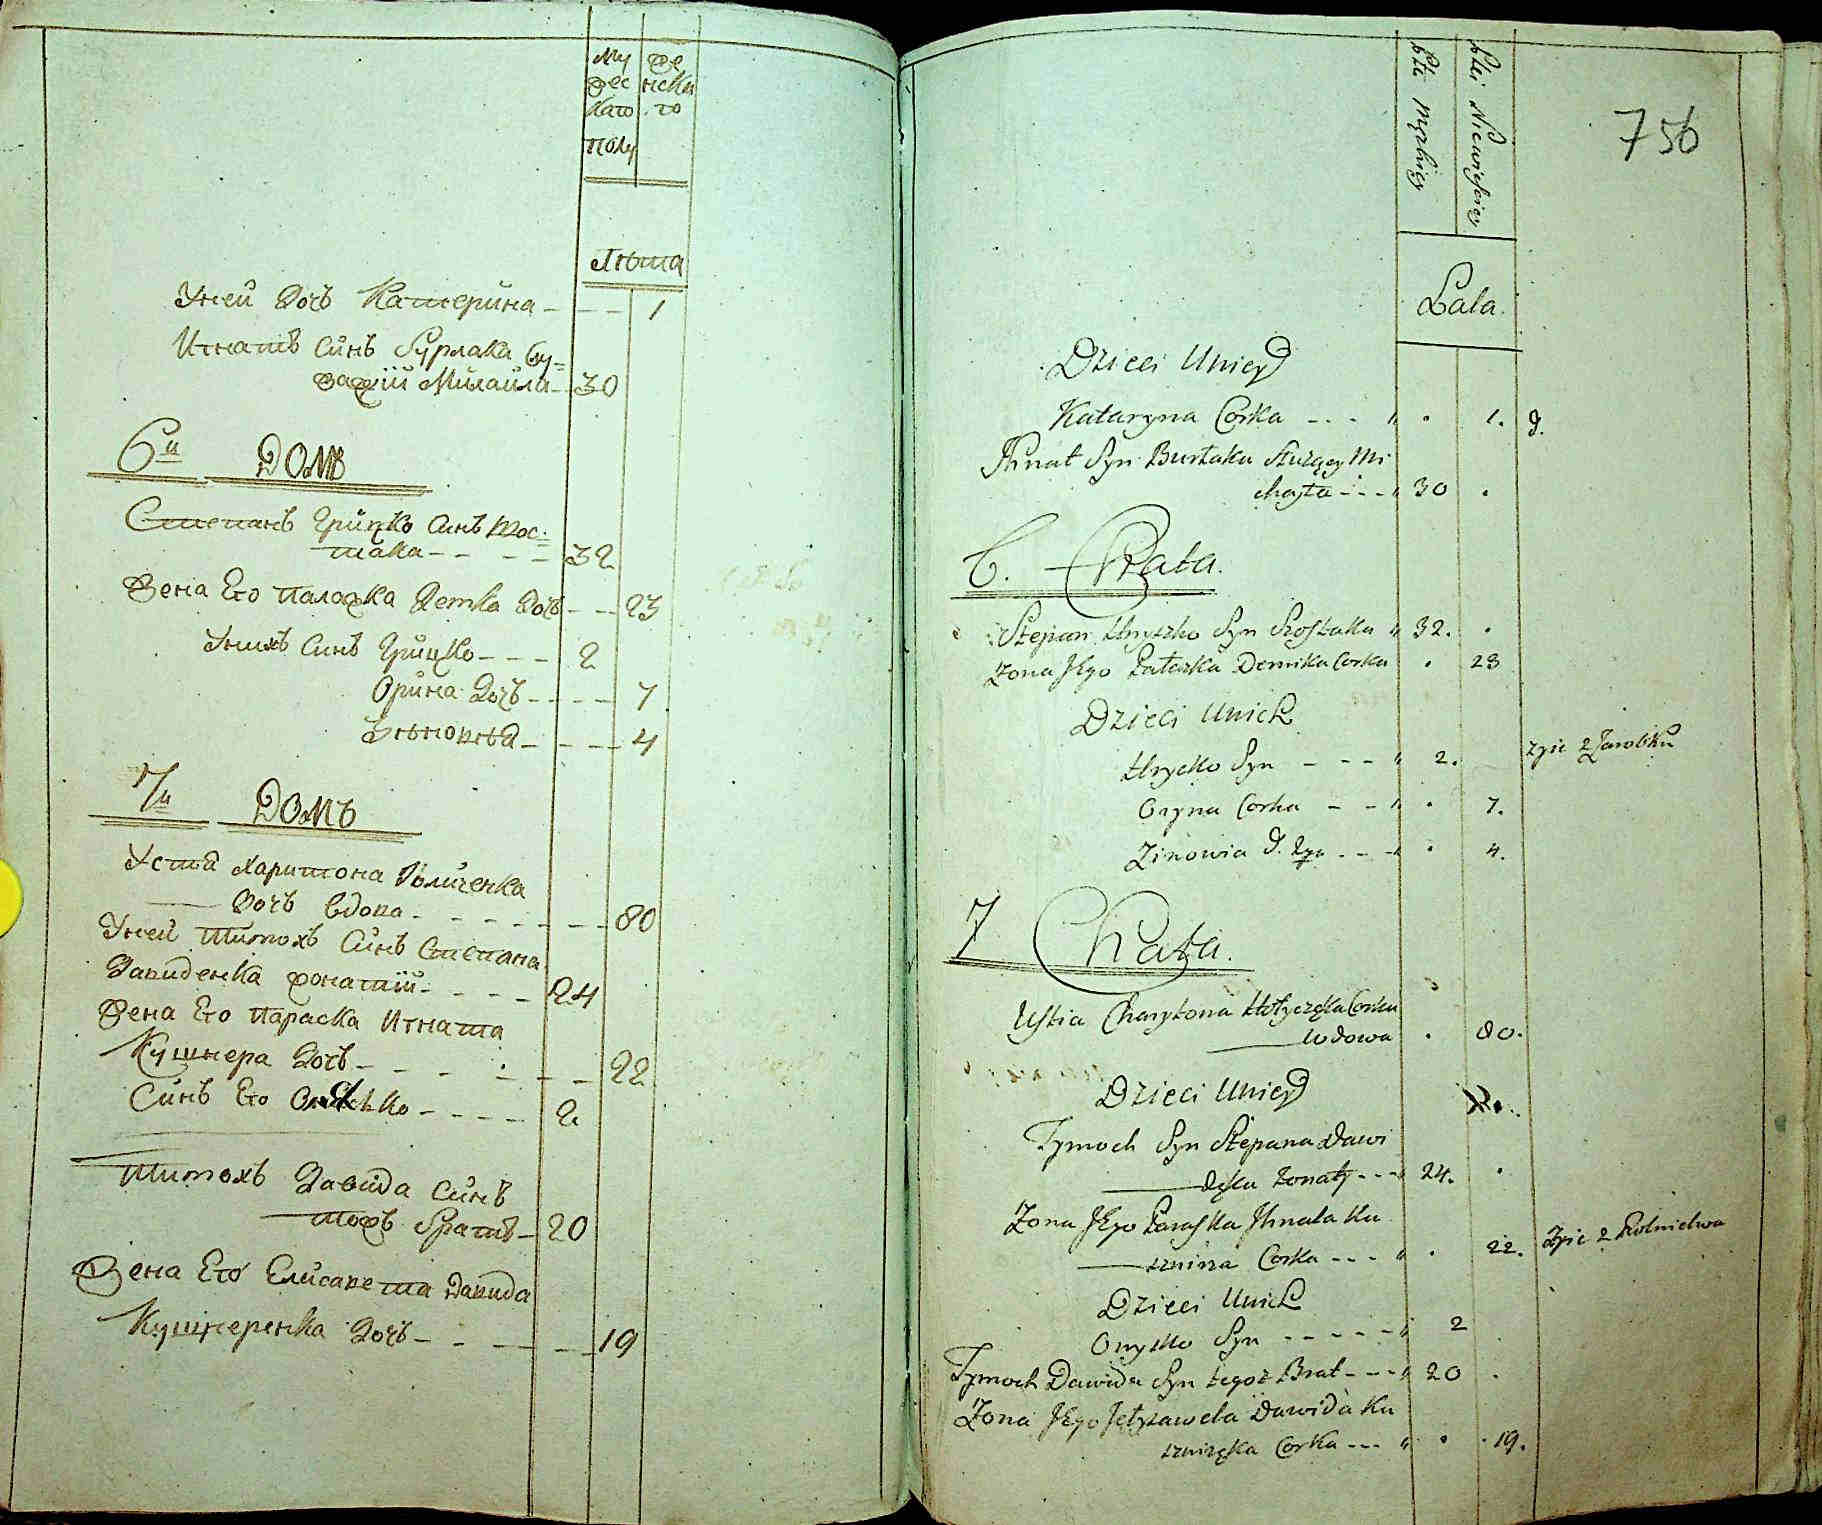 Му Же
жес нска
каго го
полу
Лѣта
Уней Дочъ Катерина - - - 1
Игнатъ Синъ Бурлака Слу=
жащій Михайла - 30
6й ДОМЪ
Степанъ Грицко Синъ Шос=
така - - - - 32
Жена Его Палажка Демка Дочъ - - 23
Унихъ Синъ Грицко - - - 2
Орина Дочъ - - - - 7
Зѣновія - - - - 4
7й ДОМЪ
Устя Харитона Голиченка
Дочъ Вдова - - - - 80
Уней Тимохъ Синъ Степана
Давиденка жонатій - - - - 24
Жена Его Параска Игната
Кушнера Дочъ - - - - - 22
Синъ Его - - - - 2
Тимохъ Давида Синъ
тожъ Братъ - 20
Жена Его Елисавета Давида
Кушнеренка Дочъ - - - - 19
Płci Męzkiey
Płci Niewieściey
756
Lata.
Dzieci Uniey
Kataryna Corka - - - " . 1. d.
Ihnat Syn Burłaka Służący Mi
chayła - - - " 30 .
6. Chata.
Stepan Hryszko Syn Szostaka " 32. .
Zona Jego Pałazka Demka Corka . 23
Dzieci Unich
Hrycko Syn - - - " 2. Zyie z Zarobku
Oryna Corka - - " . 7.
Zinowia - - - . 4.
7 Chata.
Ustia Charytona Hołyczęka Corka
Wdowa . 80.
Dzieci Uniey
Tymoch Syn Stepana Dawi
dęka Zonaty - - - " 24. .
Zona Jego Paraska Ihnata Ku
sznira Corka - - - " . 22. Zyie z Rolnictwa
Dzieci Unich
Onysko Syn - - - - - " 2 .
Tymoch Dawida Syn tegoż Brat - - - " 20 .
Zona Jego Jełyzaweta Dawida Ku
szniręka Corka - - - " . 19.